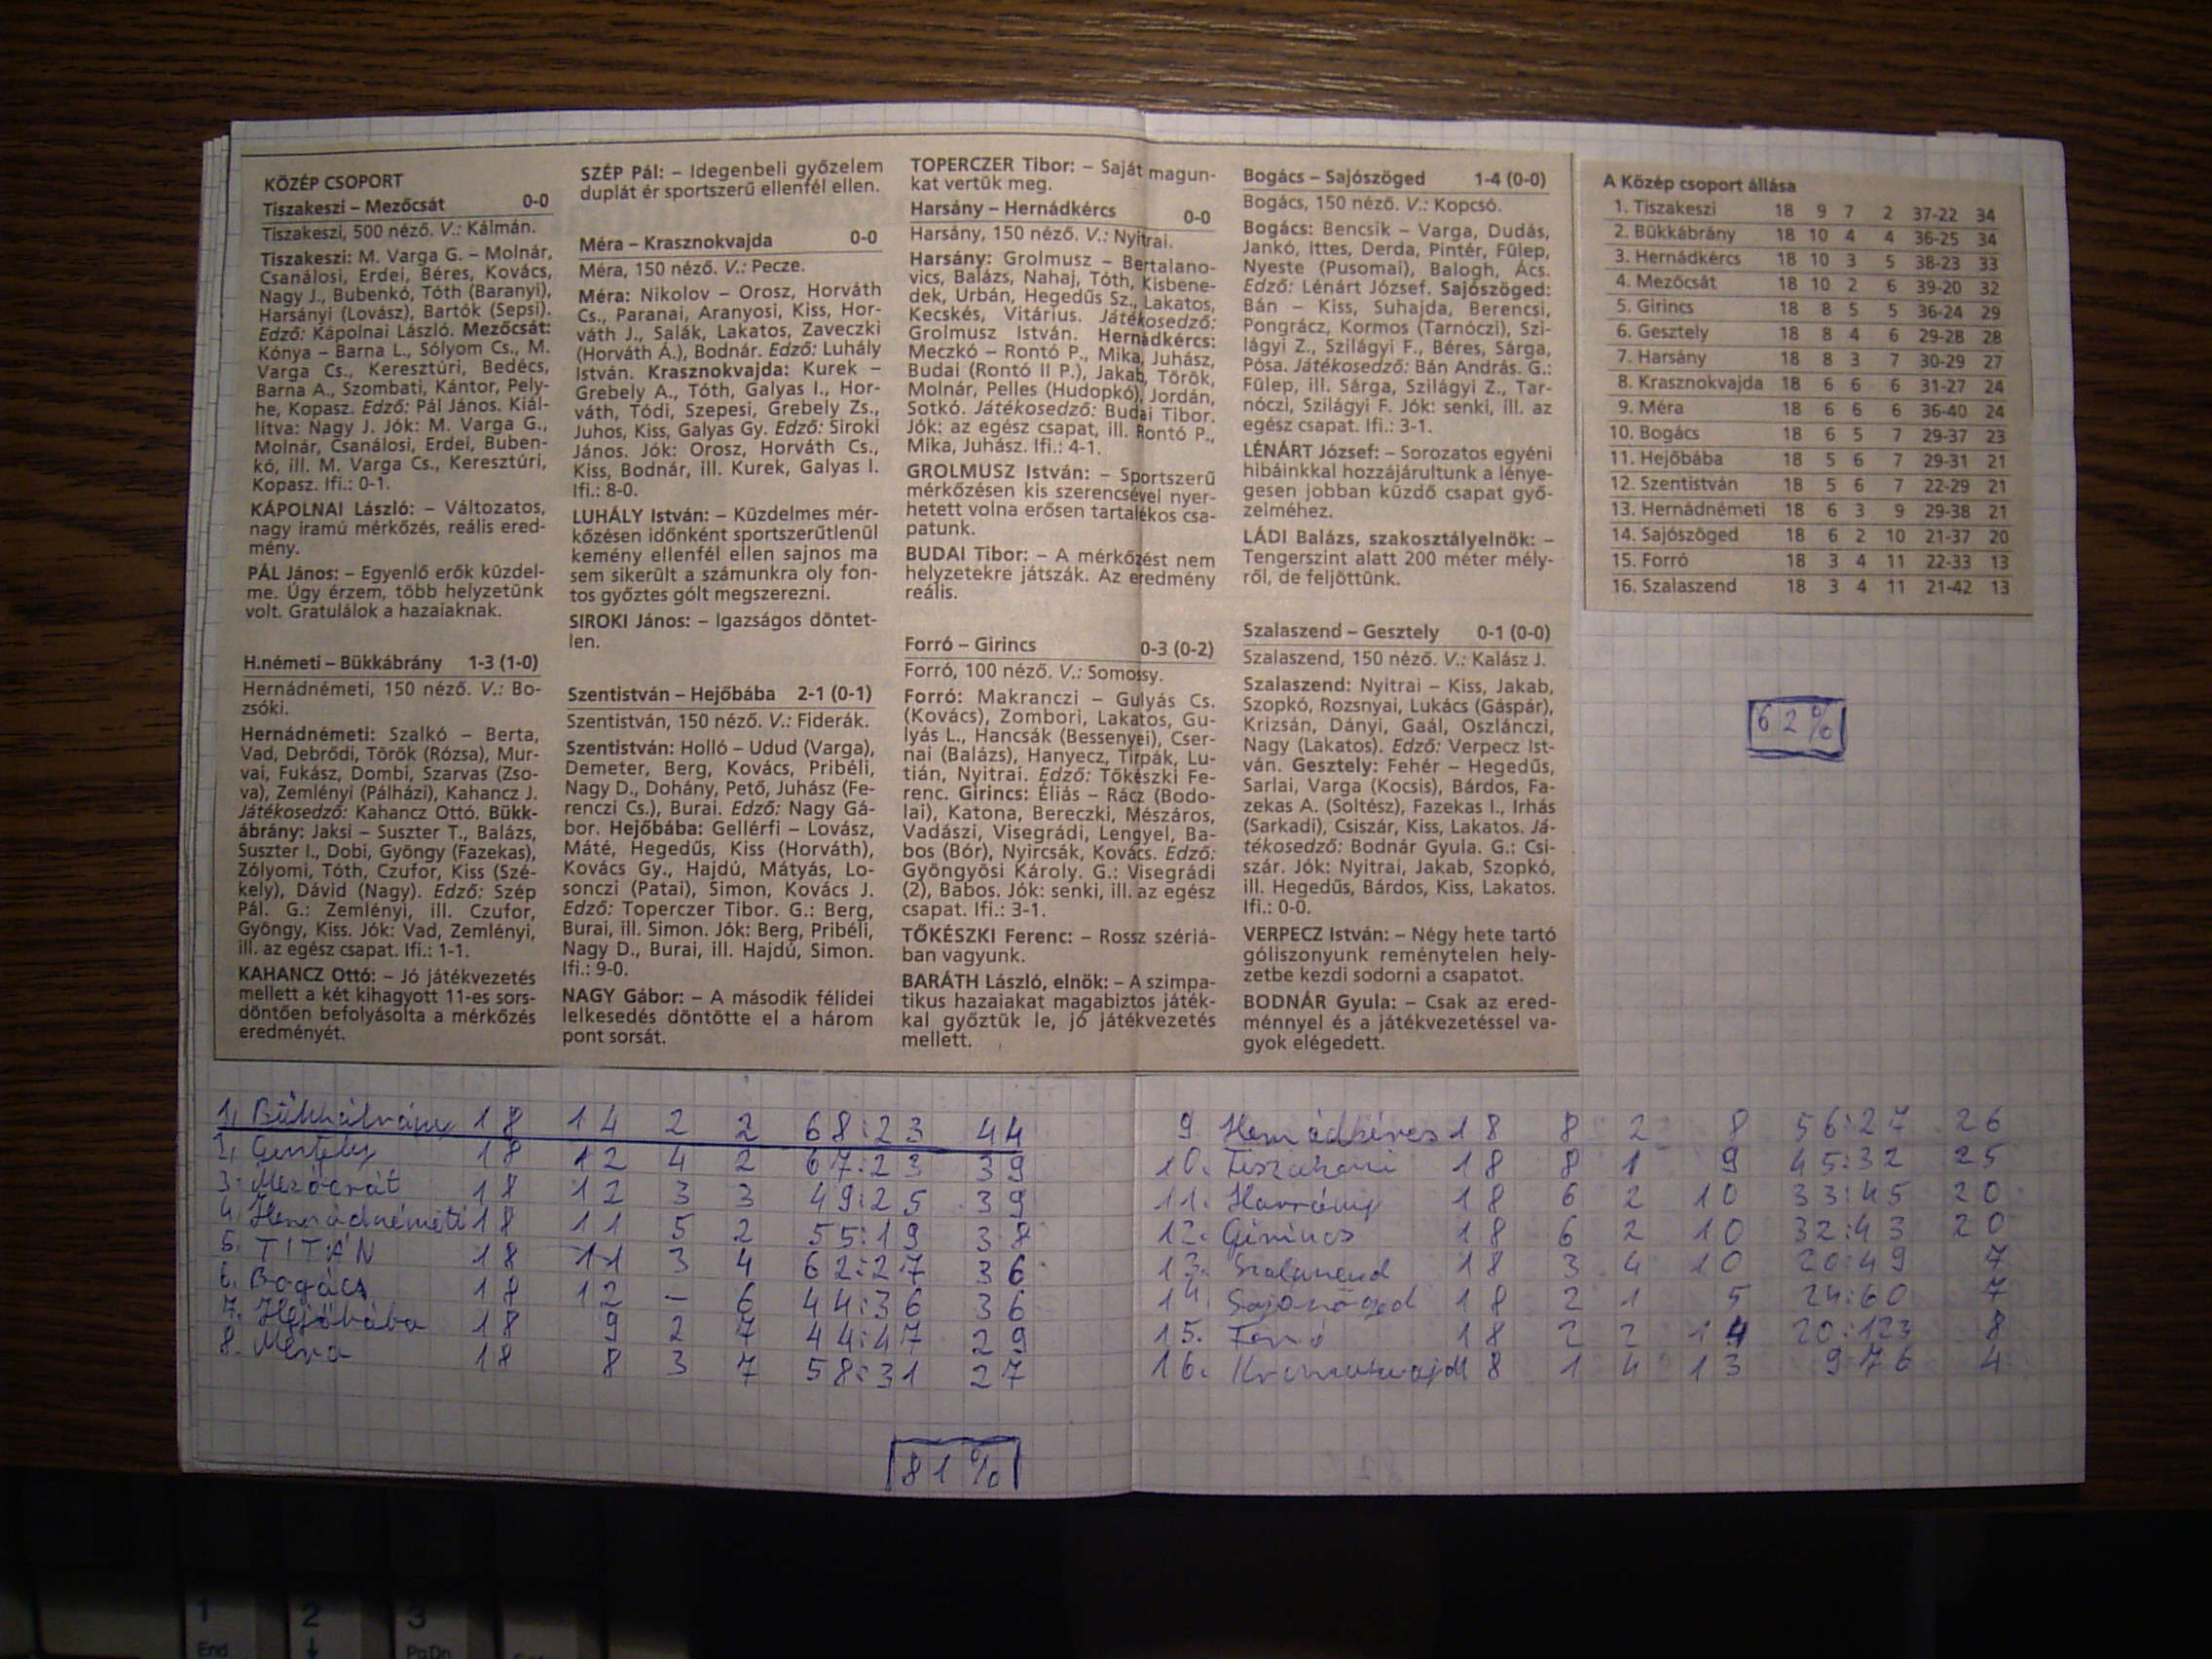 KÖZÉP CSOPORT
Tiszakeszi – Mezőcsát 0-0
Tiszakeszi, 500 néző. V.: Kálmán.
Tiszakeszi: M. Varga G. – Molnár,
Csanálosi, Erdei, Béres, Kovács,
Nagy J., Bubenkó, Tóth (Baranyi),
Harsányi (Lovász), Bartók (Sepsi).
Edző: Kápolnai László. Mezőcsát:
Kónya – Barna L., Sólyom Cs., M.
Varga Cs., Keresztúri, Bedécs,
Barna A., Szombati, Kántor, Pely-
he, Kopasz. Edző: Pál János. Kiál-
lítva: Nagy J. Jók: M. Varga G.,
Molnár, Csanálosi, Erdei, Buben-
kó, ill. M. Varga Cs., Keresztúri,
Kopasz. Ifi.: 0-1.
KÁPOLNAI László: – Változatos,
nagy iramú mérkőzés, reális ered-
mény.
PÁL János: – Egyenlő erők küzdel-
me. Úgy érzem, több helyzetünk
volt. Gratulálok a hazaiaknak.
H.németi – Bükkábrány 1-3 (1-0)
Hernádnémeti, 150 néző. V.: Bo-
zsóki.
Hernádnémeti: Szalkó – Berta,
Vad, Debrődi, Török (Rózsa), Mur-
vai, Fukász, Dombi, Szarvas (Zso-
va), Zemlényi (Pálházi), Kahancz J.
Játékosedző: Kahancz Ottó. Bükk-
ábrány: Jaksi – Suszter T., Balázs,
Suszter I., Dobi, Gyöngy (Fazekas),
Zólyomi, Tóth, Czufor, Kiss (Szé-
kely), Dávid (Nagy). Edző: Szép
Pál. G.: Zemlényi, ill. Czufor,
Gyöngy, Kiss. Jók: Vad, Zemlényi,
ill. az egész csapat. Ifi.: 1-1.
KAHANCZ Ottó: – Jó játékvezetés
mellett a két kihagyott 11-es sors-
döntően befolyásolta a mérkőzés
eredményét.
SZÉP Pál: – Idegenbeli győzelem
duplát ér sportszerű ellenfél ellen.
Méra – Krasznokvajda 0-0
Méra, 150 néző. V.: Pecze.
Méra: Nikolov – Orosz, Horváth
Cs., Paranai, Aranyosi, Kiss, Hor-
váth J., Salák, Lakatos, Zaveczki
(Horváth Á.), Bodnár. Edző: Luhály
István. Krasznokvajda: Kurek –
Grebely A., Tóth, Galyas I., Hor-
váth, Tódi, Szepesi, Grebely Zs.,
Juhos, Kiss, Galyas Gy. Edző: Siroki
János. Jók: Orosz, Horváth Cs.,
Kiss, Bodnár, ill. Kurek, Galyas I.
Ifi.: 8-0.
LUHÁLY István: – Küzdelmes mér-
kőzésen időnként sportszerűtlenül
kemény ellenfél ellen sajnos ma
sem sikerült a számunkra oly fon-
tos győztes gólt megszerezni.
SIROKI János: – Igazságos döntet-
len.
Szentistván – Hejőbába 2-1 (0-1)
Szentistván, 150 néző. V.: Fiderák.
Szentistván: Holló – Udud (Varga),
Demeter, Berg, Kovács, Pribéli,
Nagy D., Dohány, Pető, Juhász (Fe-
renczi Cs.), Burai. Edző: Nagy Gá-
bor. Hejőbába: Gellérfi – Lovász,
Máté, Hegedűs, Kiss (Horváth),
Kovács Gy., Hajdú, Mátyás, Lo-
sonczi (Patai), Simon, Kovács J.
Edző: Toperczer Tibor. G.: Berg,
Burai, ill. Simon. Jók: Berg, Pribéli,
Nagy D., Burai, ill. Hajdú, Simon.
Ifi.: 9-0.
NAGY Gábor: – A második félidei
lelkesedés döntötte el a három
pont sorsát.
TOPERCZER Tibor: – Saját magun-
kat vertük meg.
Harsány – Hernádkércs 0-0
Harsány, 150 néző. V.: Nyitrai.
Harsány: Grolmusz – Bertalano-
vics, Balázs, Nahaj, Tóth, Kisbene-
dek, Urbán, Hegedűs Sz., Lakatos,
Kecskés, Vitárius. Játékosedző:
Grolmusz István. Hernádkércs:
Meczkó – Rontó P., Mika, Juhász,
Budai (Rontó II P.), Jakab, Török,
Molnár, Pelles (Hudopkó), Jordán,
Sotkó. Játékosedző: Budai Tibor.
Jók: az egész csapat, ill. Rontó P.,
Mika, Juhász. Ifi.: 4-1.
GROLMUSZ István: – Sportszerű
mérkőzésen kis szerencsével nyer-
hetett volna erősen tartalékos csa-
patunk.
BUDAI Tibor: – A mérkőzést nem
helyzetekre játszák. Az eredmény
reális.
Forró – Girincs 0-3 (0-2)
Forró, 100 néző. V.: Somossy.
Forró: Makranczi – Gulyás Cs.
(Kovács), Zombori, Lakatos, Gu-
lyás L., Hancsák (Bessenyei), Cser-
nai (Balázs), Hanyecz, Tirpák, Lu-
tián, Nyitrai. Edző: Tőkészki Fe-
renc. Girincs: Éliás – Rácz (Bodo-
lai), Katona, Bereczki, Mészáros,
Vadászi, Visegrádi, Lengyel, Ba-
bos (Bór), Nyircsák, Kovács. Edző:
Gyöngyösi Károly. G.: Visegrádi
(2), Babos. Jók: senki, ill. az egész
csapat. Ifi.: 3-1.
TŐKÉSZKI Ferenc: – Rossz szériá-
ban vagyunk.
BARÁTH László, elnök: – A szimpa-
tikus hazaiakat magabiztos játék-
kal győztük le, jó játékvezetés
mellett.
Bogács – Sajószöged 1-4 (0-0)
Bogács, 150 néző. V.: Kopcsó.
Bogács: Bencsik – Varga, Dudás,
Jankó, Ittes, Derda, Pintér, Fülep,
Nyeste (Pusomai), Balogh, Ács.
Edző: Lénárt József. Sajószöged:
Bán – Kiss, Suhajda, Berencsi,
Pongrácz, Kormos (Tarnóczi), Szi-
lágyi Z., Szilágyi F., Béres, Sárga,
Pósa. Játékosedző: Bán András. G.:
Fülep, ill. Sárga, Szilágyi Z., Tar-
nóczi, Szilágyi F. Jók: senki, ill. az
egész csapat. Ifi.: 3-1.
LÉNÁRT József: – Sorozatos egyéni
hibáinkkal hozzájárultunk a lénye-
gesen jobban küzdő csapat győ-
zelméhez.
LÁDI Balázs, szakosztályelnök: –
Tengerszint alatt 200 méter mély-
ről, de feljöttünk.
Szalaszend – Gesztely 0-1 (0-0)
Szalaszend, 150 néző. V.: Kalász J.
Szalaszend: Nyitrai – Kiss, Jakab,
Szopkó, Rozsnyai, Lukács (Gáspár),
Krizsán, Dányi, Gaál, Oszlánczi,
Nagy (Lakatos). Edző: Verpecz Ist-
ván. Gesztely: Fehér – Hegedűs,
Sarlai, Varga (Kocsis), Bárdos, Fa-
zekas A. (Soltész), Fazekas I., Irhás
(Sarkadi), Csiszár, Kiss, Lakatos. Já-
tékosedző: Bodnár Gyula. G.: Csi-
szár. Jók: Nyitrai, Jakab, Szopkó,
ill. Hegedűs, Bárdos, Kiss, Lakatos.
Ifi.: 0-0.
VERPECZ István: – Négy hete tartó
góliszonyunk reménytelen hely-
zetbe kezdi sodorni a csapatot.
BODNÁR Gyula: – Csak az ered-
ménnyel és a játékvezetéssel va-
gyok elégedett.
A Közép csoport állása
1. Tiszakeszi 18 9 7 2 37-22 34
2. Bükkábrány 18 10 4 4 36-25 34
3. Hernádkércs 18 10 3 5 38-23 33
4. Mezőcsát 18 10 2 6 39-20 32
5. Girincs 18 8 5 5 36-24 29
6. Gesztely 18 8 4 6 29-28 28
7. Harsány 18 8 3 7 30-29 27
8. Krasznokvajda 18 6 6 6 31-27 24
9. Méra 18 6 6 6 36-40 24
10. Bogács 18 6 5 7 29-37 23
11. Hejőbába 18 5 6 7 29-31 21
12. Szentistván 18 5 6 7 22-29 21
13. Hernádnémeti 18 6 3 9 29-38 21
14. Sajószöged 18 6 2 10 21-37 20
15. Forró 18 3 4 11 22-33 13
16. Szalaszend 18 3 4 11 21-42 13
62%
1, Bükkábrány 18 14 2 2 68:23 44
2, Gesztely 18 12 4 2 67:23 39
3. Mezőcsát 18 12 3 3 49:25 39
4. Hernádnémeti 18 11 5 2 55:19 38
5. TITÁN 18 11 3 4 62:27 36
6. Bogács 18 12 – 6 44:36 36
7. Hejőbába 18 9 2 7 44:47 29
8. Méra 18 8 3 7 58:31 27
9. Hernádkércs 18 8 2 8 56:27 26
10. Tiszakeszi 18 8 1 9 45:32 25
11. Harsány 18 6 2 10 33:45 20
12. Girincs 18 6 2 10 32:43 20
13. Szalaszend 18 3 4 10 20:49 7
14. Sajószöged 18 2 1 5 24:60 7
15. Forró 18 2 2 14 20:123 8
16. Krasznokvajda 18 1 4 13 9:76 4
81%
1
End
2
↓
3
PgDn